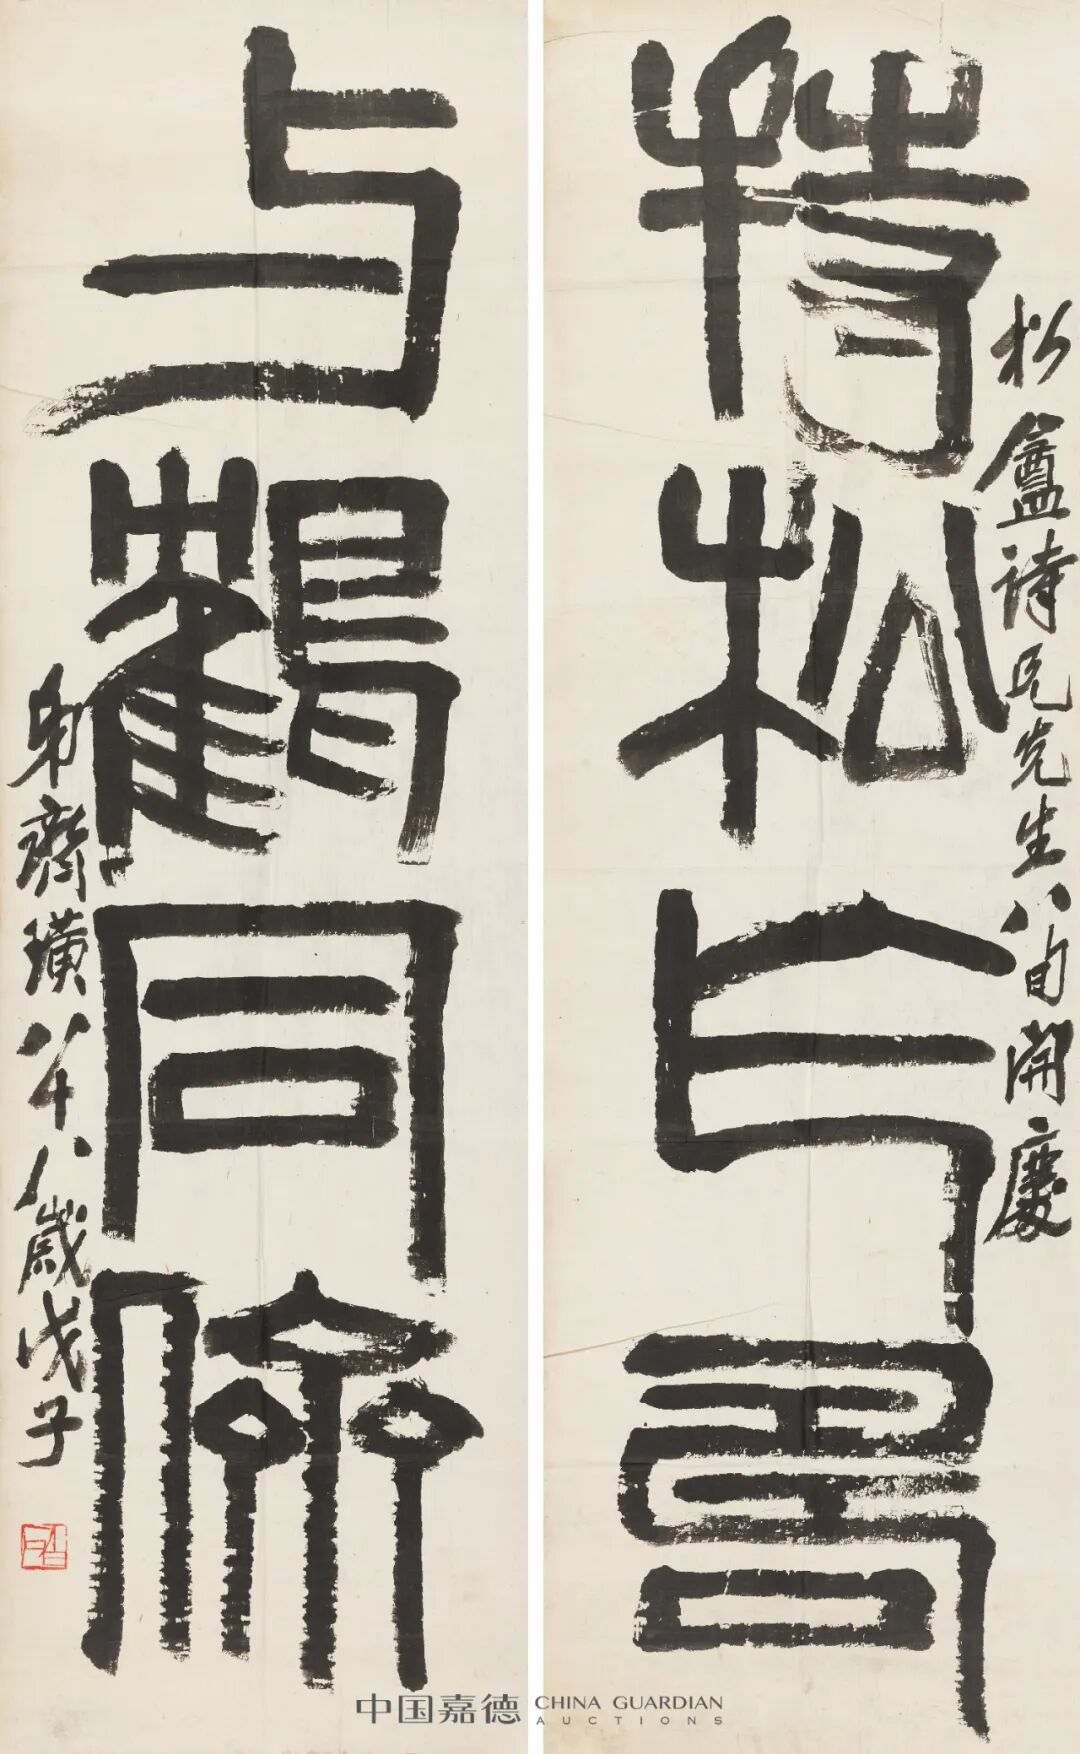 松盦詩兄先生八旬開慶
松 壽
与鶴同儕
弟齊璜八十八歲戊子
白石
中国嘉德 CHINA GUARDIAN
AUCTIONS